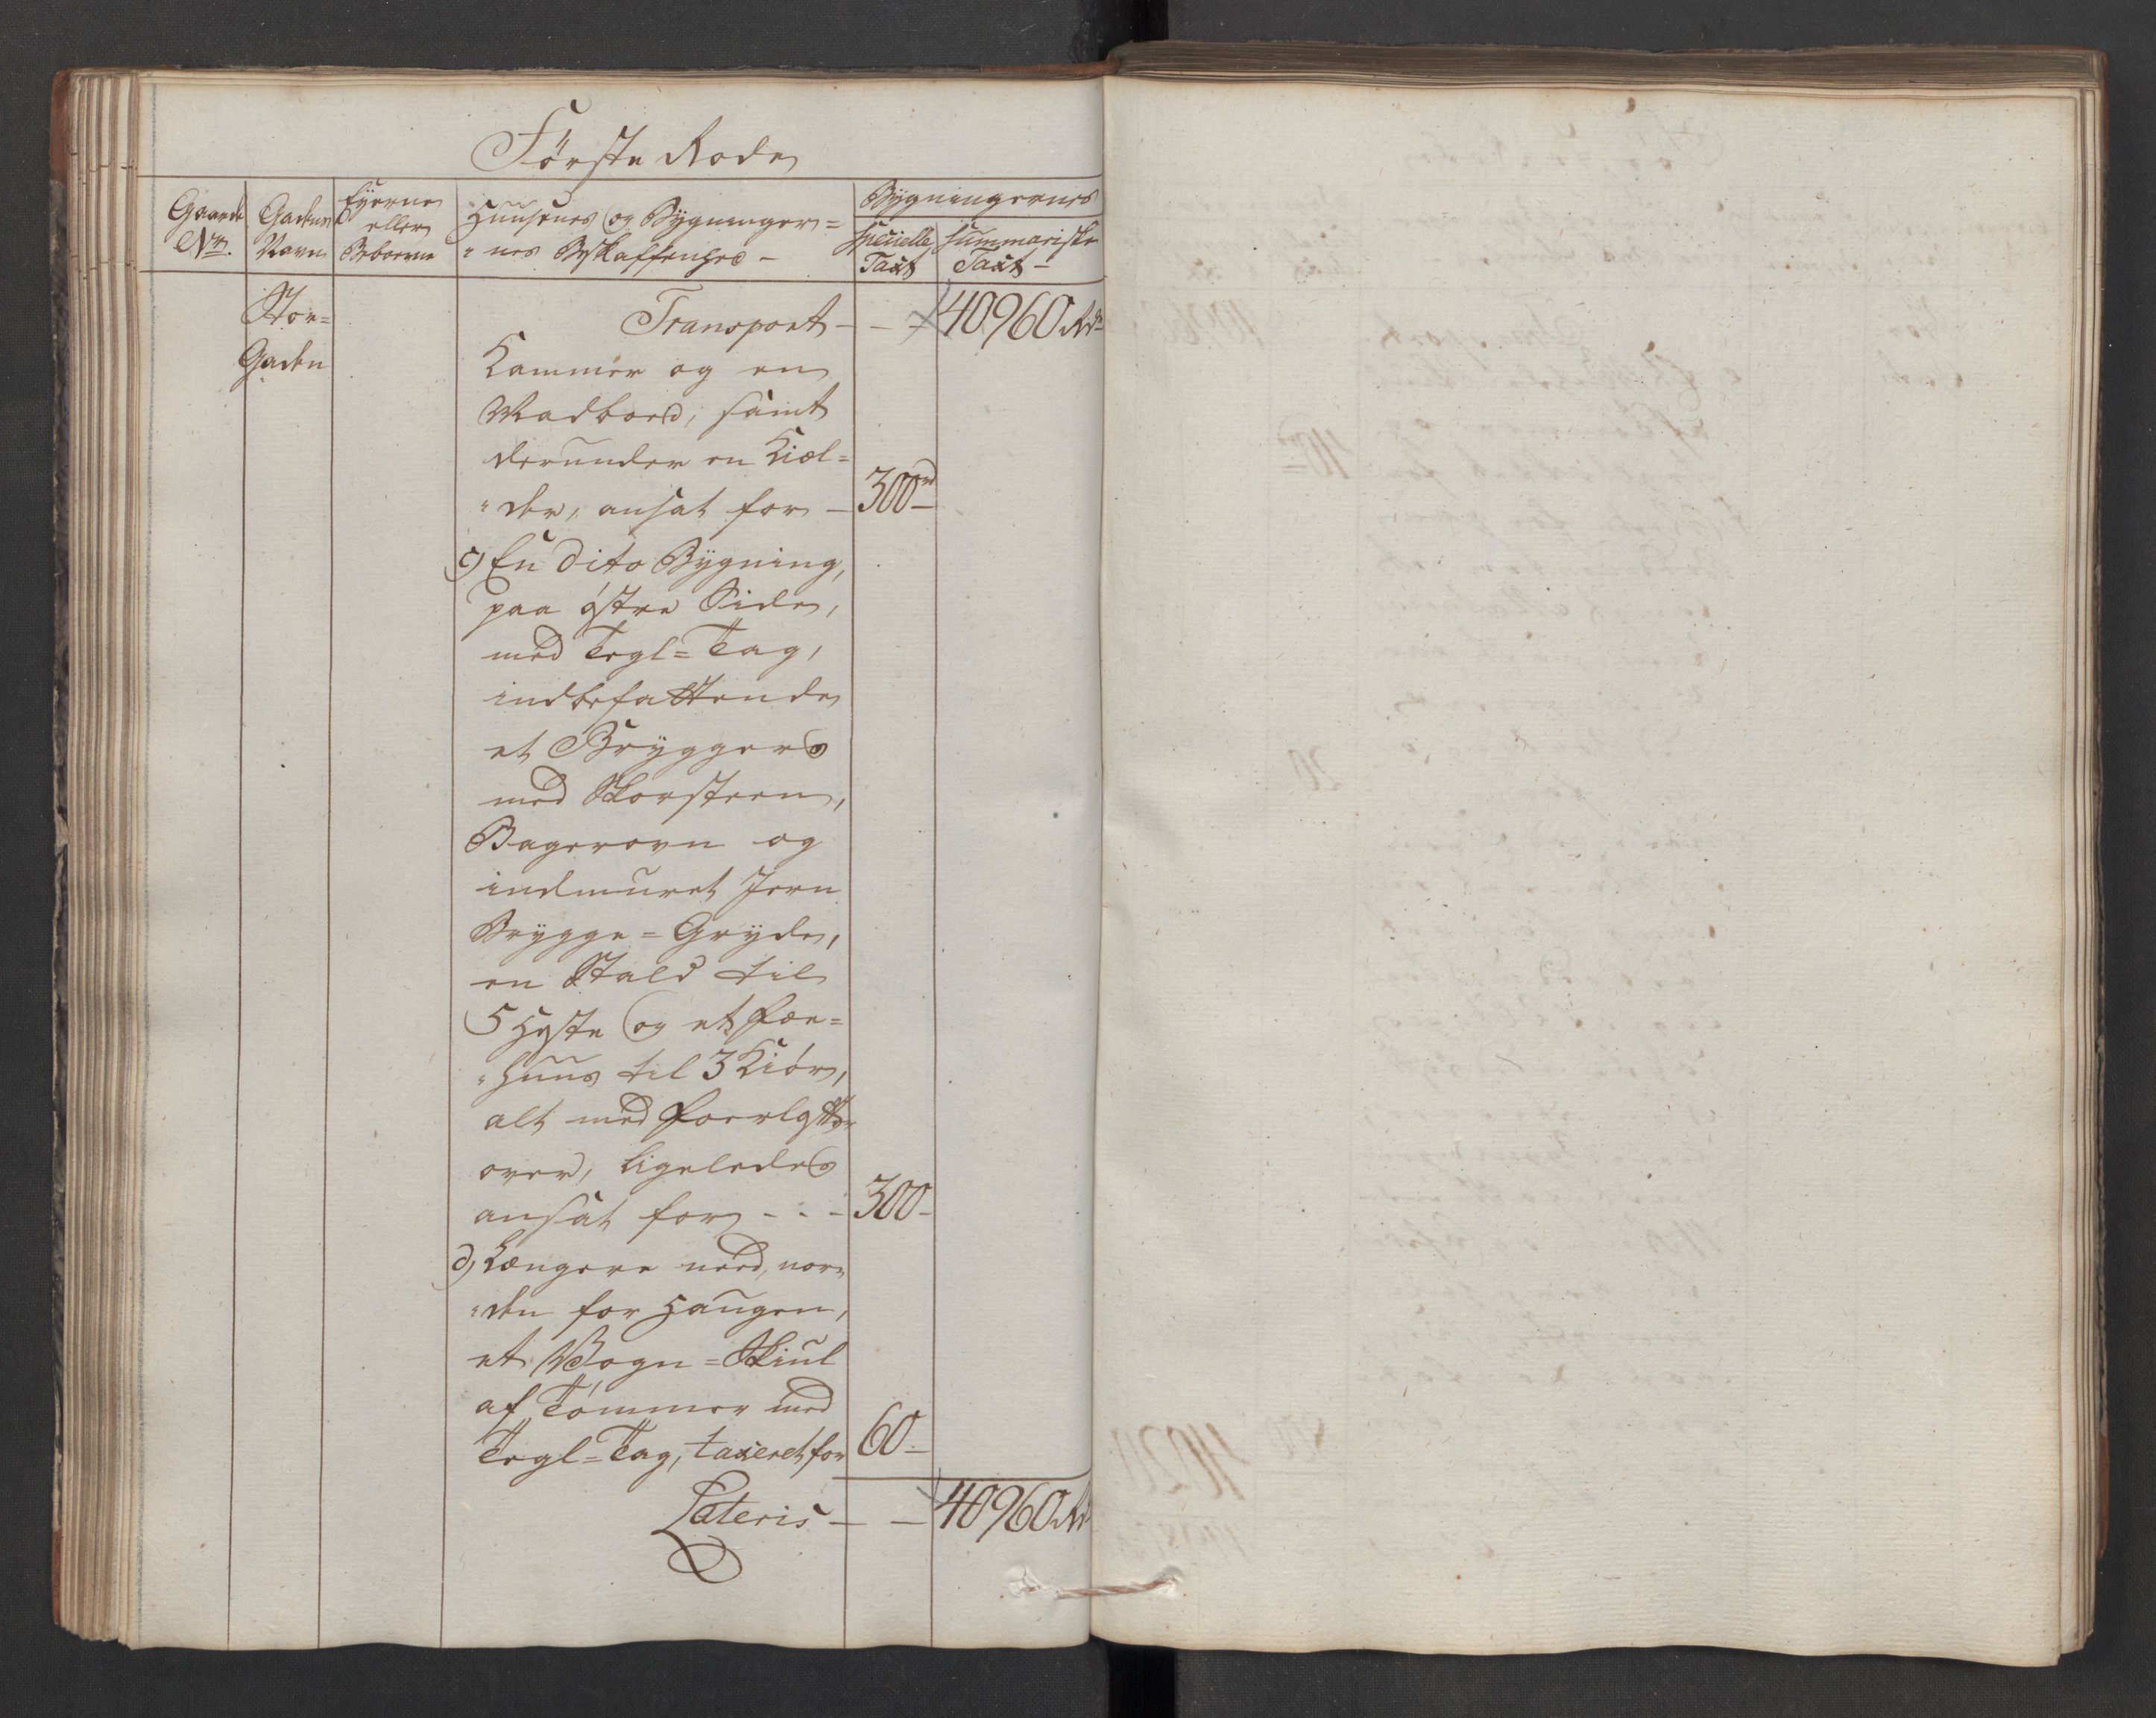 Förste Rode
Gaards Nr.
Gadens Navn
Eyerne eller Beboerne
Huusenes og Bygninger=
"nes Beskaffenhed -
Bygningernes
Specielle Taxt
Summariske Taxt -
Stor=
Gaden
Transport - - 40960 Rd
Kammer og en
Madboed, samt
derunder en Kiæl=
"der, ansat for - 300 rd -
c) En dito Bygning,
paa østre Side,
med Tegl=Tag,
indbefattende
et Bryggers
med Skorsteen,
Bagerovn og
indmuret Jern
Brygge=Gryde,
en Stald til
5 Heste og et Fæe=
"huus til 3 Kiör,
alt med Foerloft
over, ligeledes
ansat for - - - 300 -
d) Længere need, nor=
"den for Haugen,
et Vogn=Skiul
af Tømmer med
Tegl=Tag, taxeret for 60 -
Lateris - - 40960 Rd